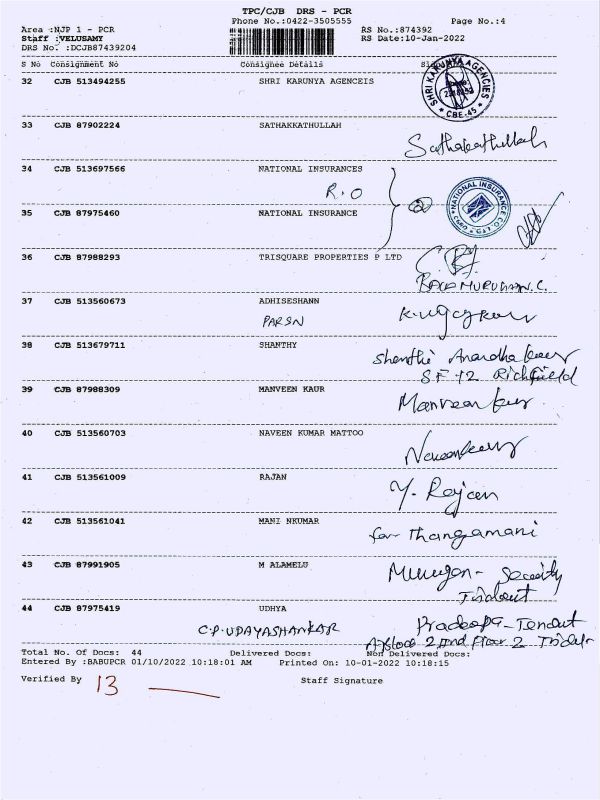 TPC/CJB DRS - PCR
Phone No.:0422-3505555 Page No.:4
Area :NJP 1 - PCR RS No.:874392
Staff :VELUSAMY RS Date:10-Jan-2022
DRS No. :DCJB87439204
S No Consignment No Consignee Details
32 CJB 513494255 SHRI KARUNYA AGENCEIS
SHRI KARUNYA AGENCIES
CBE-45
33 CJB 87902224 SATHAKKATHULLAH
Sathakathullah
34 CJB 513697566 NATIONAL INSURANCES
R.O
NATIONAL INSURANCE CO.
35 CJB 87975460 NATIONAL INSURANCE
36 CJB 87988293 TRISQUARE PROPERTIES P LTD
37 CJB 513560673 ADHISESHANN
PARSN
38 CJB 513679711 SHANTHY
Shenthi
SF 12 Richfield
39 CJB 87988309 MANVEEN KAUR
Manveen kaur
40 CJB 513560703 NAVEEN KUMAR MATTOO
41 CJB 513561009 RAJAN
Y. Rajan
42 CJB 513561041 MANI NKUMAR
for Thangamani
43 CJB 87991905 M ALAMELU
Murugan - Security
44 CJB 87975419 UDHYA
C.P. UDAYASHANKAR
2nd Floor 2
Total No. Of Docs: 44 Delivered Docs: Non Delivered Docs:
Entered By :BABUPCR 01/10/2022 10:18:01 AM Printed On: 10-01-2022 10:18:15
Verified By 13 Staff Signature